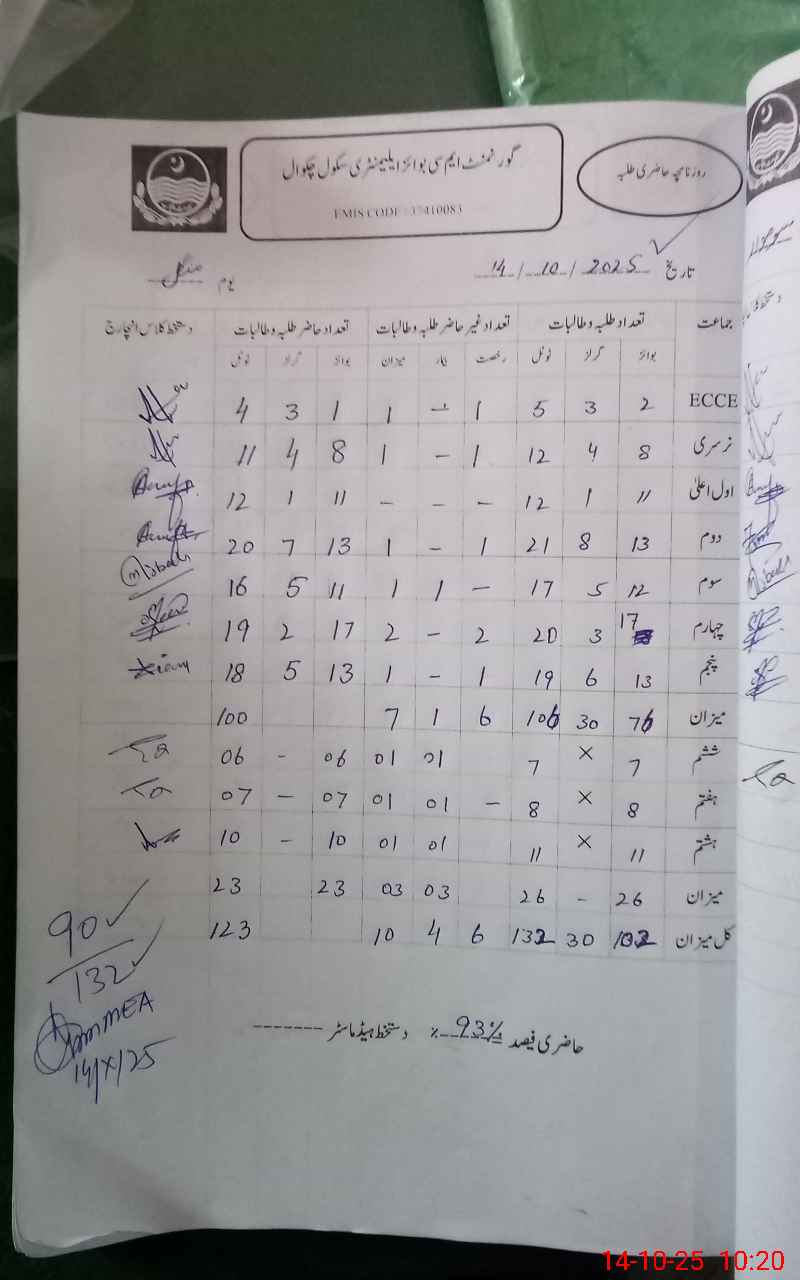 گورنمنٹ ایم سی بوائز ایلیمنٹری سکول چکوال
EMIS CODE : 37410083
روزنامچہ حاضری طلبہ
تاریخ 14 / 10 / 2025 یوم منگل
جماعت تعداد طلبہ و طالبات تعداد غیر حاضر طلبہ و طالبات تعداد حاضر طلبہ و طالبات دستخط کلاس انچارج
بوائز گرلز ٹوٹل رخصت بیمار میزان بوائز گرلز ٹوٹل
ECCE 2 3 5 1 – 1 1 3 4
نرسری 8 4 12 1 – 1 8 4 11
اول اعلیٰ 11 1 12 – – – 11 1 12
دوم 13 8 21 1 – 1 13 7 20
سوم 12 5 17 – 1 1 11 5 16 Misbah
چہارم 17 3 20 2 – 2 17 2 19
پنجم 13 6 19 1 – 1 13 5 18
میزان 76 30 106 6 1 7 100
ششم 7 × 7 01 01 06 – 06
ہفتم 8 × 8 – 01 01 07 – 07
ہشتم 11 × 11 01 01 10 – 10
میزان 26 – 26 03 03 23 23
کل میزان 102 30 132 6 4 10 123
90
132
MEA
14/X/25
حاضری فیصد 93% % دستخط ہیڈ ماسٹر -------
14-10-25 10:20